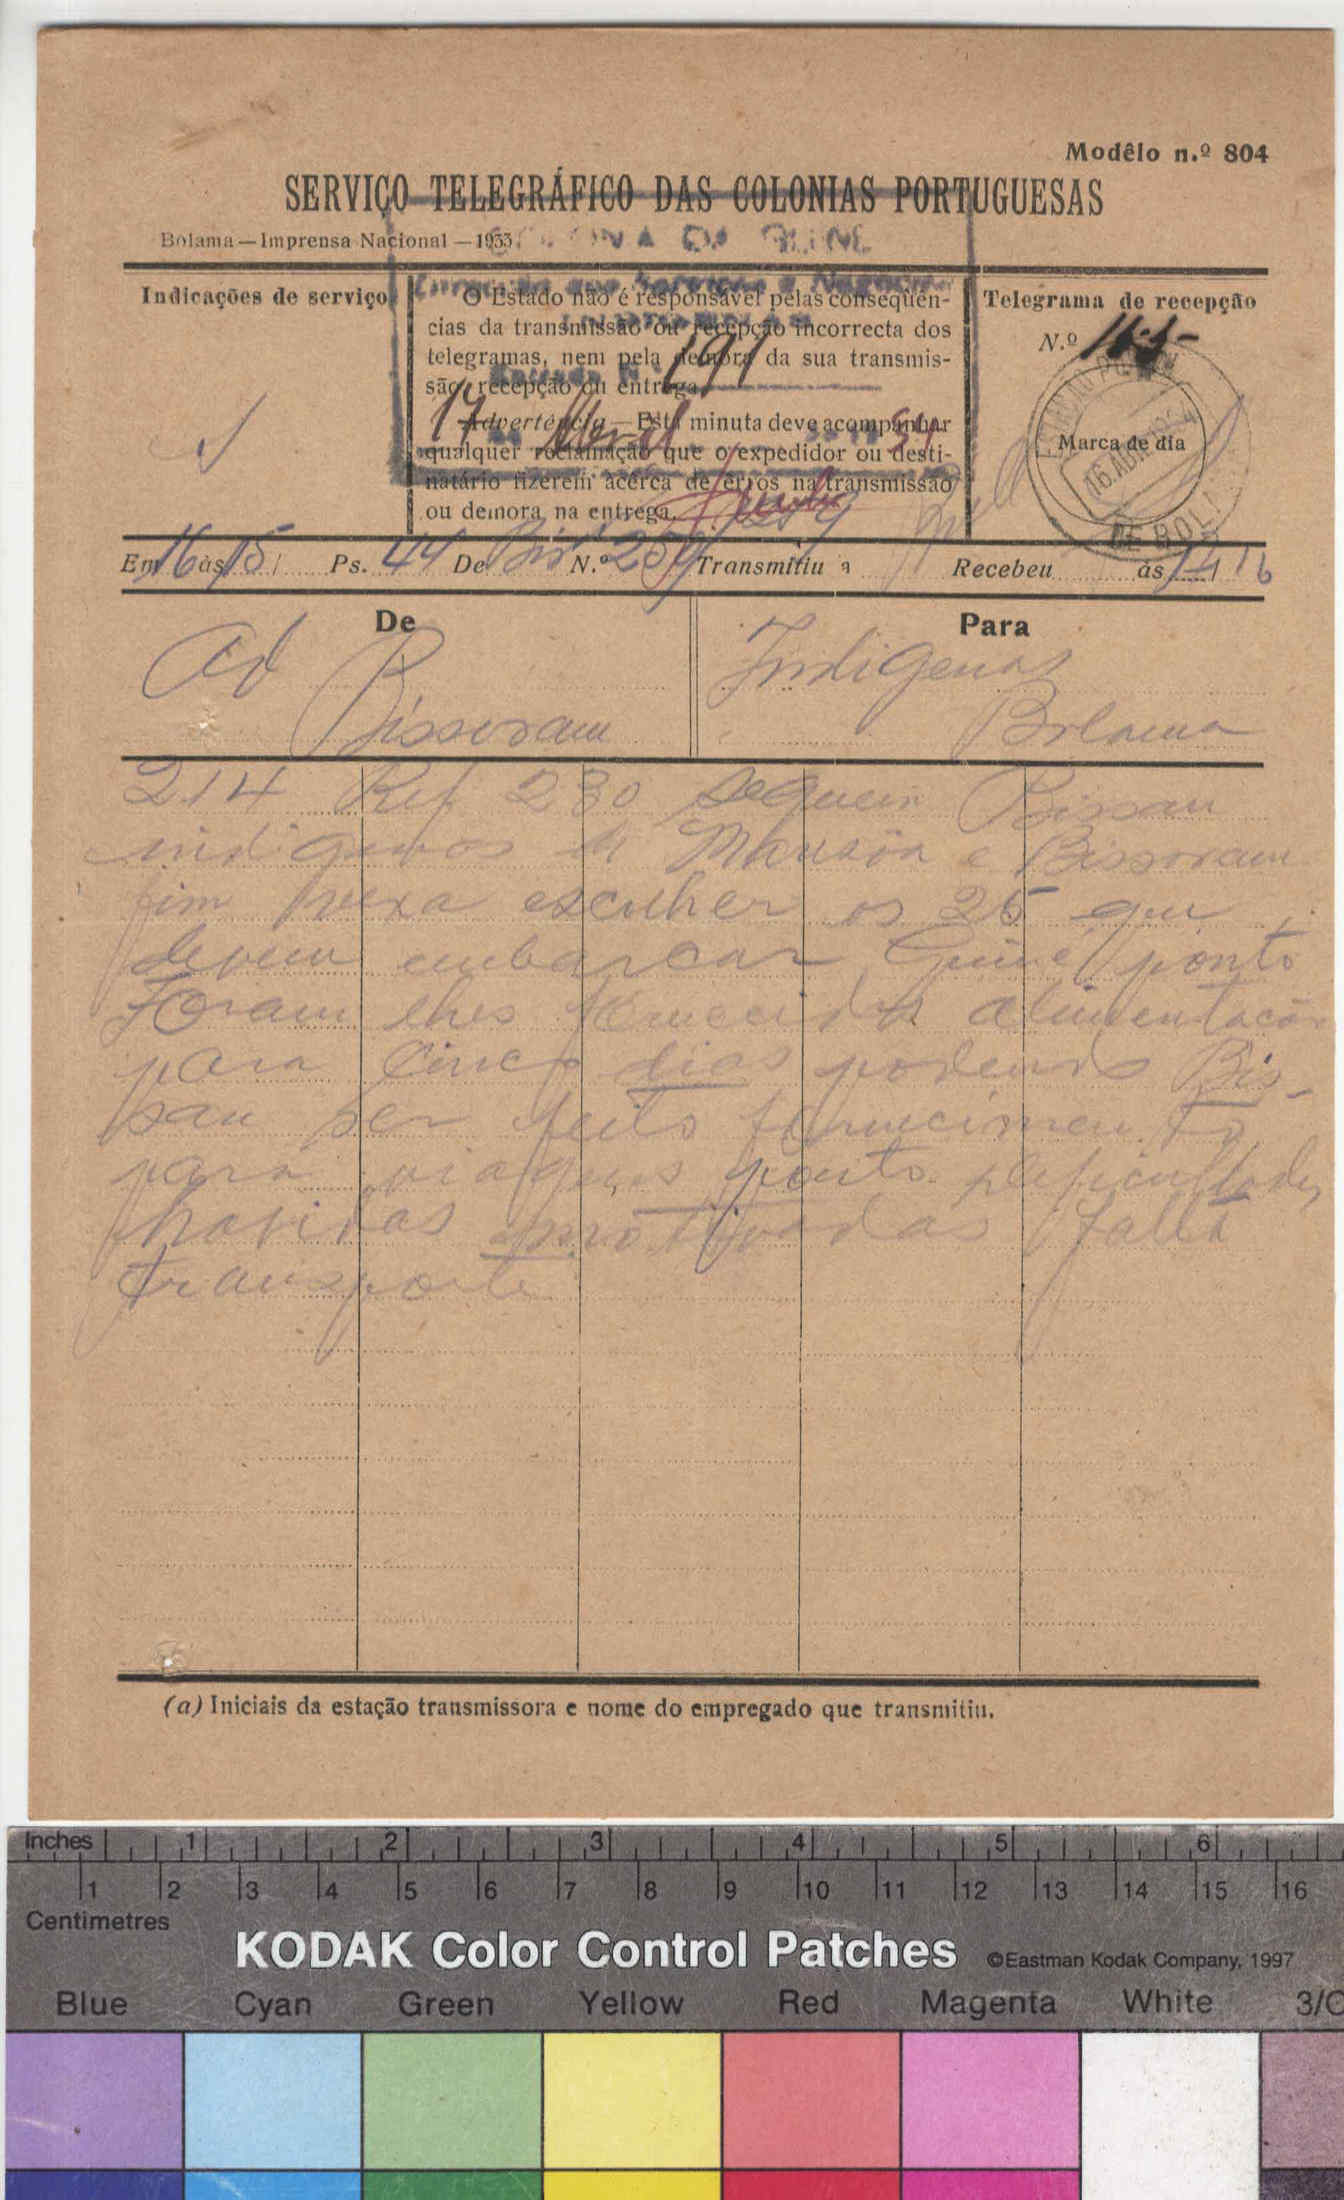 Modêlo n.º 804
SERVIÇO TELEGRÁFICO DAS COLONIAS PORTUGUESAS
Bolama—Imprensa Nacional—1933
COLONIA DA GUINÉ
Indicações de serviço
O Estado não é responsável pelas conseqüen-
cias da transmissão ou recepção incorrecta dos
telegramas, nem pela demora da sua transmis-
são, recepção ou entrega.
Advertência—Esta minuta deve acompanhar
qualquer reclamação que o expedidor ou desti-
natário fizerem àcêrca de erros na transmissão
ou demora na entrega.
191
17 Abril 34
Telegrama de recepção
N.º
Marca de dia
16.AB
Em 16 às 15 Ps. 44 De Bis N.º 259 Transmitiu a Recebeu às 16
De
Para
Ad Indigenas
Bissoram Bolama
214 Ref 230 seguem Bissau
indigenas de Mansôa e Bissoram
fim escolher os 25 que
devem embarcar Guiné ponto
Foram lhes alimentação
para cinco dias podendo Bis-
sau ser feito fornecimento
para viagens ponto
havidas motivadas falta
transporte
(a) Iniciais da estação transmissora e nome do empregado que transmitiu.
Inches 1 2 3 4 5 6
1 2 3 4 5 6 7 8 9 10 11 12 13 14 15 16
Centimetres
KODAK Color Control Patches ©Eastman Kodak Company, 1997
Blue Cyan Green Yellow Red Magenta White